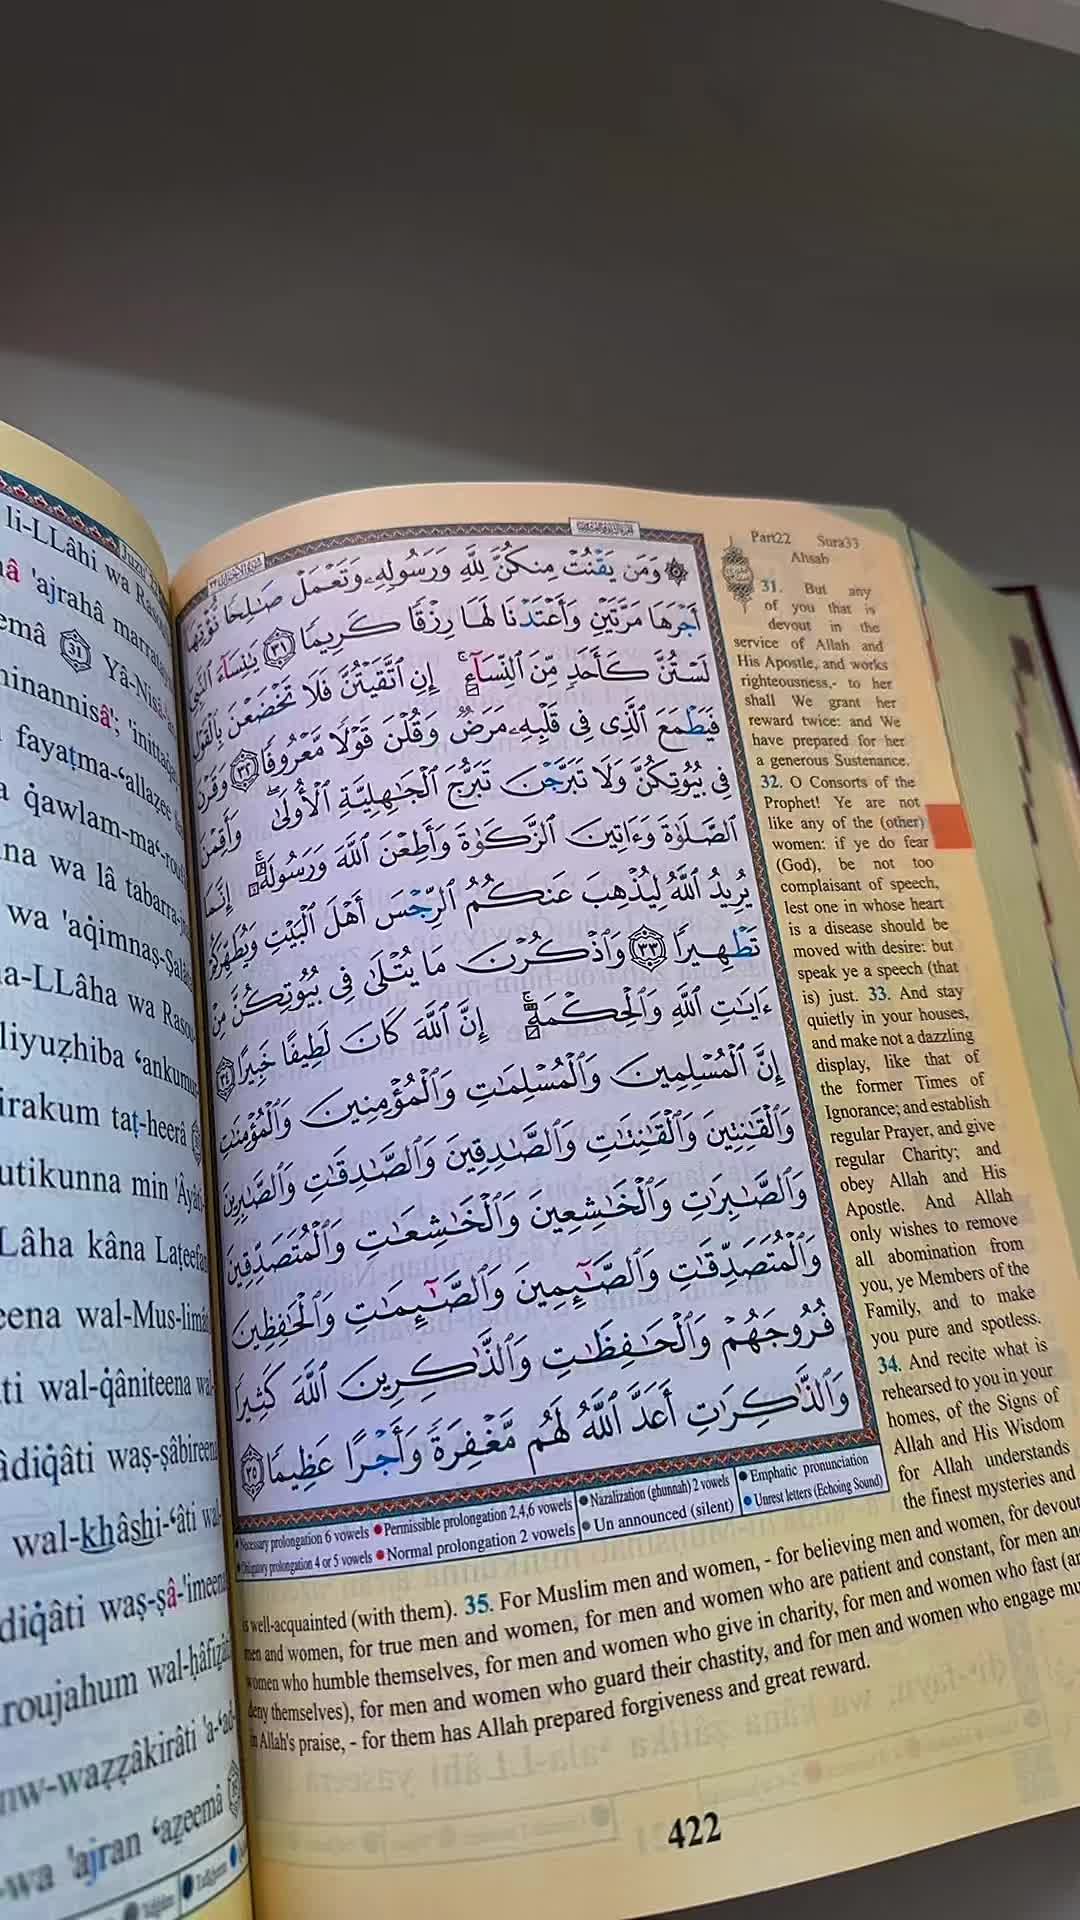 li-LLâhi wa Rasou
'ajrahâ marrate
31 Yâ-Nisâ-'a
ninannisâ'; 'inittaqa
fayaṭma-ʻallaẓee
a q̇awlam-maʻ-rou
na wa lâ tabarra-j
wa 'aq̇imnaṣ-Ṣala
a-LLâha wa Raso
liyuẓhiba ʻankumu
irakum taṭ-heerâ
utikunna min 'Âyât
Lâha kâna Laṭeefan
eena wal-Mus-limâ
ti wal-q̇âniteena wa
âdiq̇âti waṣ-ṣâbireen
wal-khâshi-ʻâti wal-
diq̇âti waṣ-ṣâ-'imeen
roujahum wal-ḥâfiẓât
nw-waẓẓâkirâti 'a-ʻad-
-wa 'ajran ʻaẓeemâ
۞ وَمَن يَقۡنُتۡ مِنكُنَّ لِلَّهِ وَرَسُولِهِۦ وَتَعۡمَلۡ صَٰلِحٗا نُّؤۡتِهَآ
أَجۡرَهَا مَرَّتَيۡنِ وَأَعۡتَدۡنَا لَهَا رِزۡقٗا كَرِيمٗا ٣١ يَٰنِسَآءَ ٱلنَّبِيِّ
لَسۡتُنَّ كَأَحَدٖ مِّنَ ٱلنِّسَآءِۚ إِنِ ٱتَّقَيۡتُنَّ فَلَا تَخۡضَعۡنَ بِٱلۡقَوۡلِ
فَيَطۡمَعَ ٱلَّذِي فِي قَلۡبِهِۦ مَرَضٞ وَقُلۡنَ قَوۡلٗا مَّعۡرُوفٗا ٣٢ وَقَرۡنَ
فِي بُيُوتِكُنَّ وَلَا تَبَرَّجۡنَ تَبَرُّجَ ٱلۡجَٰهِلِيَّةِ ٱلۡأُولَىٰۖ وَأَقِمۡنَ
ٱلصَّلَوٰةَ وَءَاتِينَ ٱلزَّكَوٰةَ وَأَطِعۡنَ ٱللَّهَ وَرَسُولَهُۥٓۚ إِنَّمَا
يُرِيدُ ٱللَّهُ لِيُذۡهِبَ عَنكُمُ ٱلرِّجۡسَ أَهۡلَ ٱلۡبَيۡتِ وَيُطَهِّرَكُمۡ
تَطۡهِيرٗا ٣٣ وَٱذۡكُرۡنَ مَا يُتۡلَىٰ فِي بُيُوتِكُنَّ مِنۡ
ءَايَٰتِ ٱللَّهِ وَٱلۡحِكۡمَةِۚ إِنَّ ٱللَّهَ كَانَ لَطِيفًا خَبِيرًا ٣٤
إِنَّ ٱلۡمُسۡلِمِينَ وَٱلۡمُسۡلِمَٰتِ وَٱلۡمُؤۡمِنِينَ وَٱلۡمُؤۡمِنَٰتِ
وَٱلۡقَٰنِتِينَ وَٱلۡقَٰنِتَٰتِ وَٱلصَّٰدِقِينَ وَٱلصَّٰدِقَٰتِ وَٱلصَّٰبِرِينَ
وَٱلصَّٰبِرَٰتِ وَٱلۡخَٰشِعِينَ وَٱلۡخَٰشِعَٰتِ وَٱلۡمُتَصَدِّقِينَ
وَٱلۡمُتَصَدِّقَٰتِ وَٱلصَّٰٓئِمِينَ وَٱلصَّٰٓئِمَٰتِ وَٱلۡحَٰفِظِينَ
فُرُوجَهُمۡ وَٱلۡحَٰفِظَٰتِ وَٱلذَّٰكِرِينَ ٱللَّهَ كَثِيرٗا
وَٱلذَّٰكِرَٰتِ أَعَدَّ ٱللَّهُ لَهُم مَّغۡفِرَةٗ وَأَجۡرًا عَظِيمٗا ٣٥
Necessary prolongation 6 vowels ● Permissible prolongation 2,4,6 vowels ● Nazalization (ghunnah) 2 vowels ● Emphatic pronunciation
Obligatory prolongation 4 or 5 vowels ● Normal prolongation 2 vowels ● Un announced (silent) ● Unrest letters (Echoing Sound)
Part22 Sura33
Ahsab
31. But any
of you that is
devout in the
service of Allah and
His Apostle, and works
righteousness,- to her
shall We grant her
reward twice: and We
have prepared for her
a generous Sustenance.
32. O Consorts of the
Prophet! Ye are not
like any of the (other)
women: if ye do fear
(God), be not too
complaisant of speech,
lest one in whose heart
is a disease should be
moved with desire: but
speak ye a speech (that
is) just. 33. And stay
quietly in your houses,
and make not a dazzling
display, like that of
the former Times of
Ignorance; and establish
regular Prayer, and give
regular Charity; and
obey Allah and His
Apostle. And Allah
only wishes to remove
all abomination from
you, ye Members of the
Family, and to make
you pure and spotless.
34. And recite what is
rehearsed to you in your
homes, of the Signs of
Allah and His Wisdom
for Allah understands
the finest mysteries and
is well-acquainted (with them). 35. For Muslim men and women, - for believing men and women, for devout
men and women, for true men and women, for men and women who are patient and constant, for men and
women who humble themselves, for men and women who give in charity, for men and women who fast (an
deny themselves), for men and women who guard their chastity, and for men and women who engage mu
in Allah's praise, - for them has Allah prepared forgiveness and great reward.
422